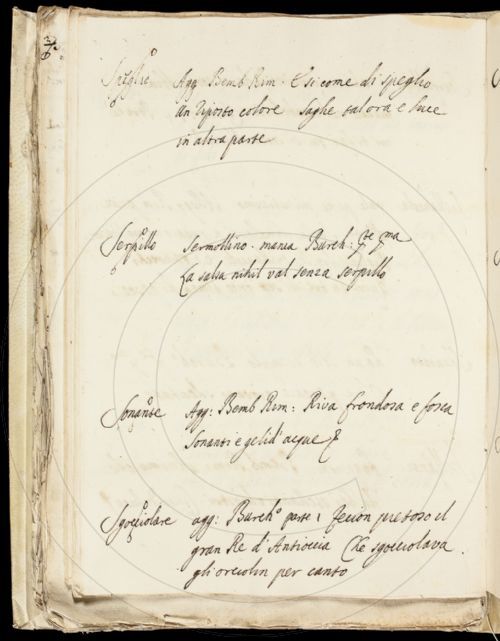 Speglio Agg. Bemb Rim. E si come di speglio
un riposto colore saglie talora e luce
in altra parte
Serpillo Sermollino. manca Burch: pte pma
La salsa nihil val senza serpillo
Sonante Agg: Bemb Rim: Riva frondosa e fosca
Sonanti e gelid' acque
Sgocciolare agg: Burcho parte 1 fecion presoso il
gran Re d'Antioccia Che sgocciolava
gli orciolin per canto